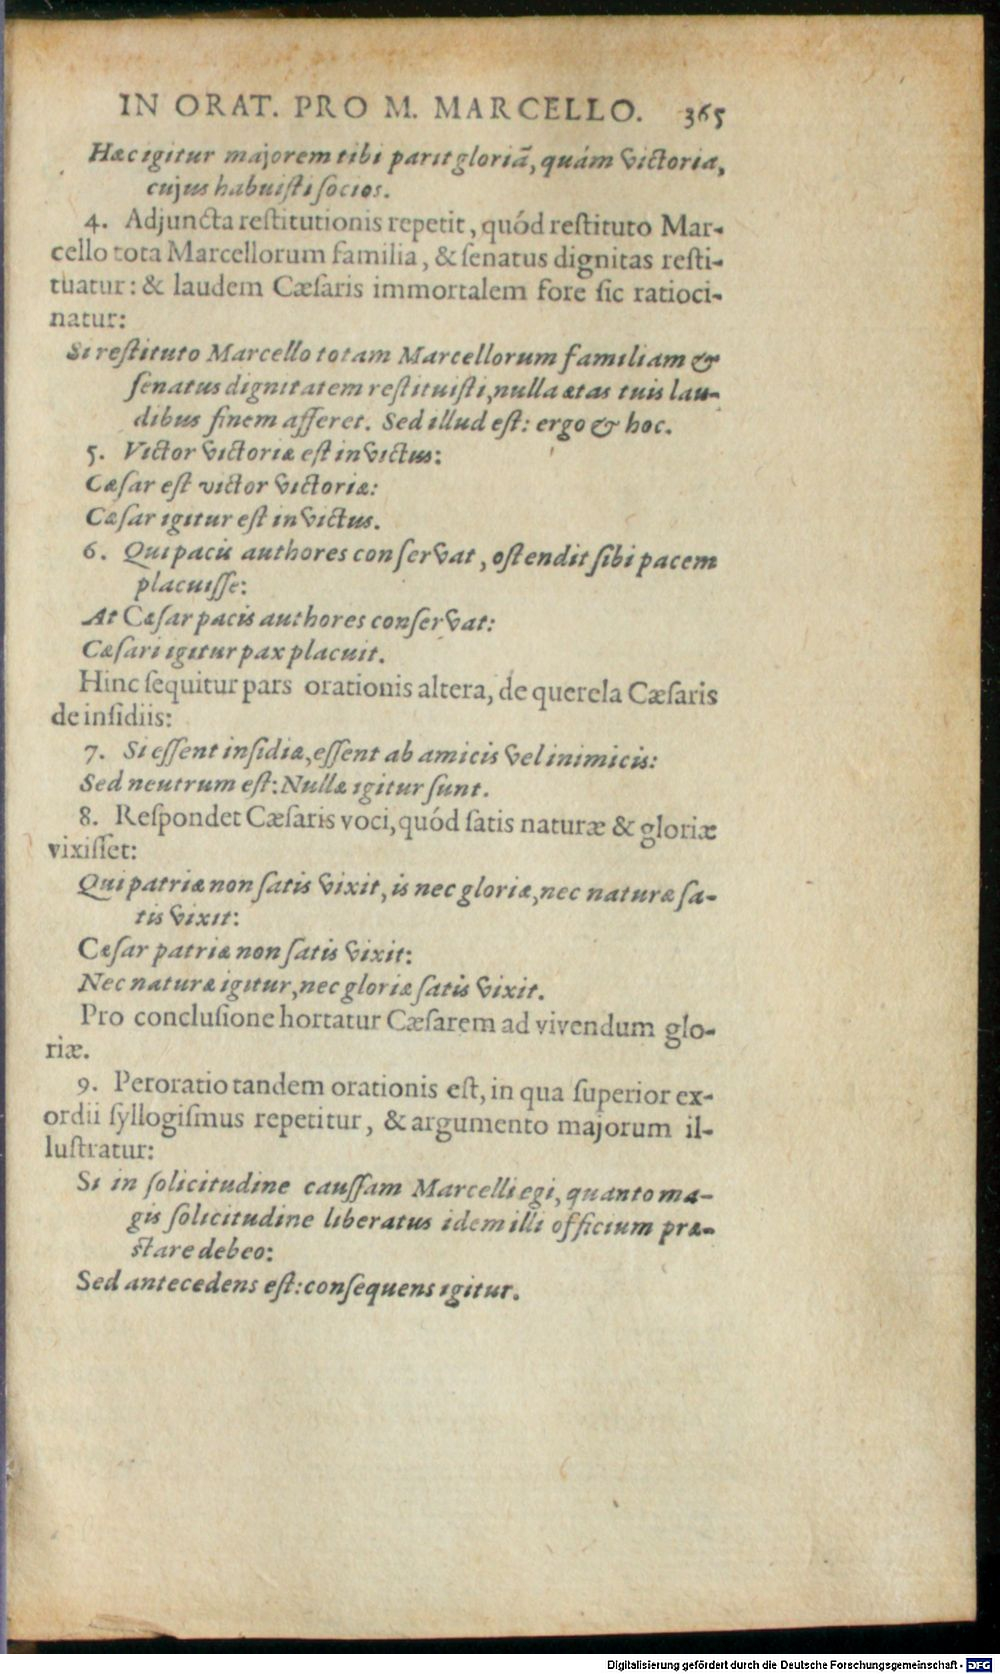 IN ORAT. PRO M. MARCELLO. 365
Hæc igitur majorem tibi parit gloriã, quám victoria,
cujus habuisti socios.
4. Adjuncta restitutionis repetit, quód restituto Mar-
cello tota Marcellorum familia, & senatus dignitas resti-
tuatur: & laudem Cæsaris immortalem fore sic ratioci-
natur:
Si restituto Marcello totam Marcellorum familiam &
senatus dignitatem restituisti, nulla ætas tuis lau-
dibus finem afferet. Sed illud est: ergo & hoc.
5. Victor victoriæ est invictus:
Cæsar est victor victoriæ:
Cæsar igitur est invictus.
6. Qui pacis authores conservat, ostendit sibi pacem
placuisse:
At Cæsar pacis authores conservat:
Cæsari igitur pax placuit.
Hinc sequitur pars orationis altera, de querela Cæsaris
de insidiis:
7. Si essent insidiæ, essent ab amicis vel inimicis:
Sed neutrum est: Nullæ igitur sunt.
8. Respondet Cæsaris voci, quód satis naturæ & gloriæ
vixisset:
Qui patriæ non satis vixit, is nec gloriæ, nec naturæ sa-
tis vixit:
Cæsar patriæ non satis vixit:
Nec naturæ igitur, nec gloriæ satis vixit.
Pro conclusione hortatur Cæsarem ad vivendum glo-
riæ.
9. Peroratio tandem orationis est, in qua superior ex-
ordii syllogismus repetitur, & argumento majorum il-
lustratur:
Si in solicitudine caussam Marcelli egi, quanto ma-
gis solicitudine liberatus idem illi officium præ-
stare debeo:
Sed antecedens est: consequens igitur.
Digitalisierung gefördert durch die Deutsche Forschungsgemeinschaft - DFG